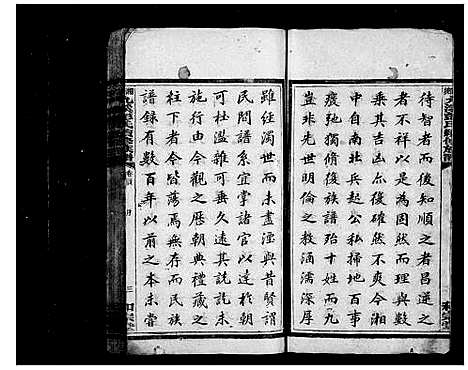 待智者而後知順之者昌逆之
者不祥以為固然而理與數
乘其吉凶亦復確然不爽今湘
中自南北兵起公私掃地百事
廢弛獨脩復族譜殆十姓而九
豈非先世明倫之教涵濡深厚
雖經濁世而未盡湮與昔賢謂
民間譜系宜掌諸官以達於朝
可杜溫雜可垂久遠其說託未
施行由今觀之歷朝典禮藏之
柱下者今皆蕩焉無存而民族
譜錄有數百年以前之本未嘗